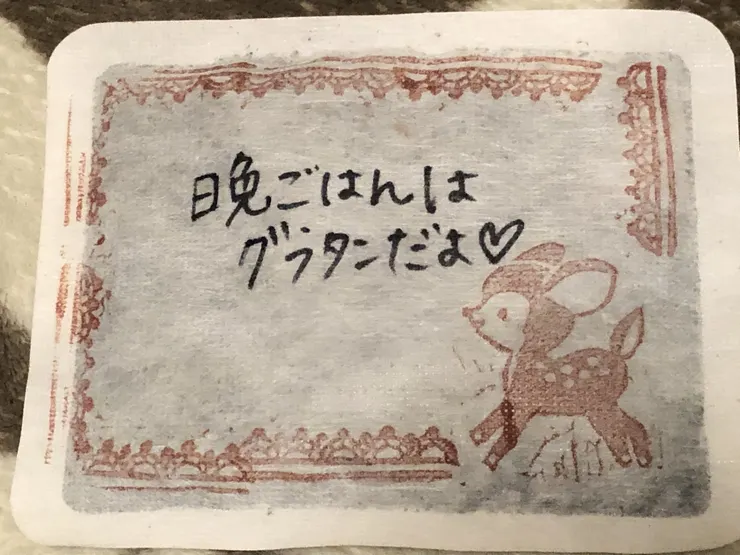 晩ごはんは
グラタンだよ♡